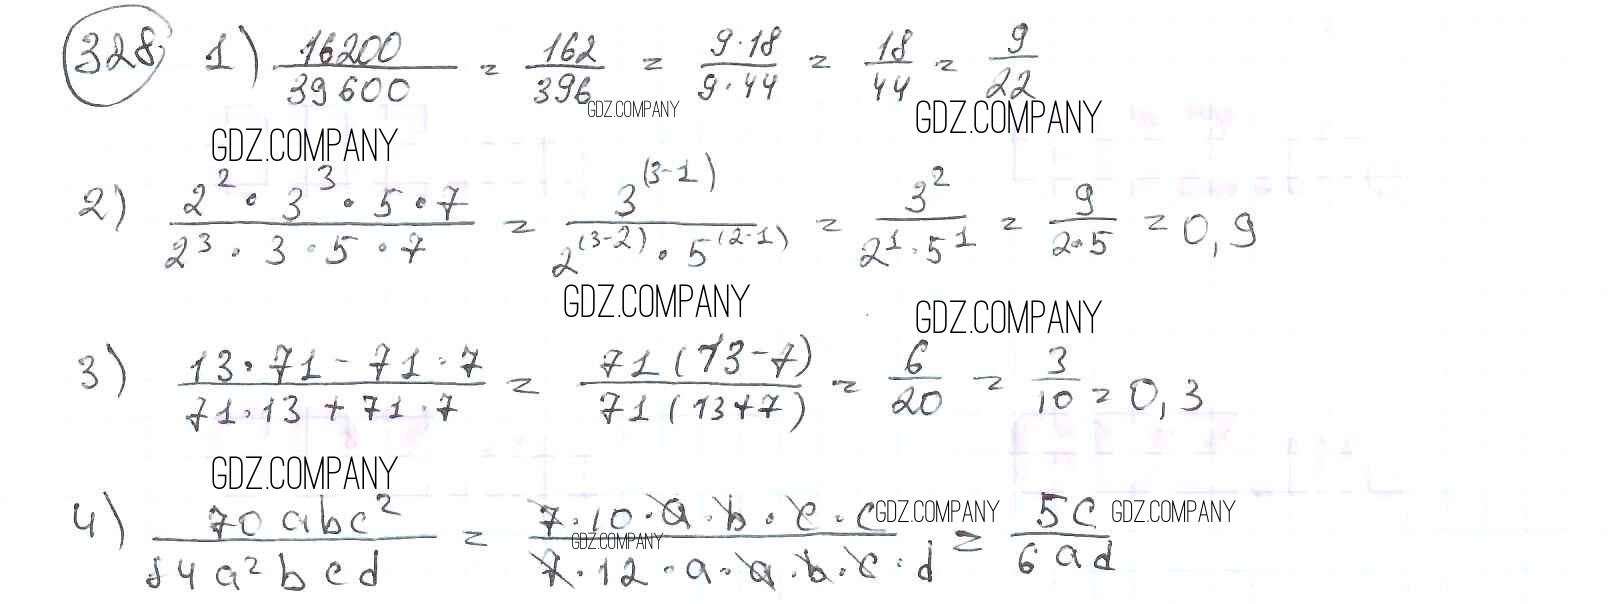 328 1) 16200/39600 = 162/396 = 9·18/9·44 = 18/44 = 9/22
GDZ.COMPANY
GDZ.COMPANY GDZ.COMPANY
2) 2² · 3³ · 5 · 7/2³ · 3 · 5 · 7 = 3⁽³⁻¹⁾/2⁽³⁻²⁾ · 5⁽²⁻¹⁾ = 3²/2¹ · 5¹ = 9/2·5 = 0,9
GDZ.COMPANY GDZ.COMPANY
3) 13·71 - 71·7/71·13 + 71·7 = 71(13-7)/71(13+7) = 6/20 = 3/10 = 0,3
GDZ.COMPANY
4) 70abc²/84a²bcd = 7·10·a·b·c·c/7·12·a·a·b·c·d = 5c/6ad
GDZ.COMPANY GDZ.COMPANY
GDZ.COMPANY